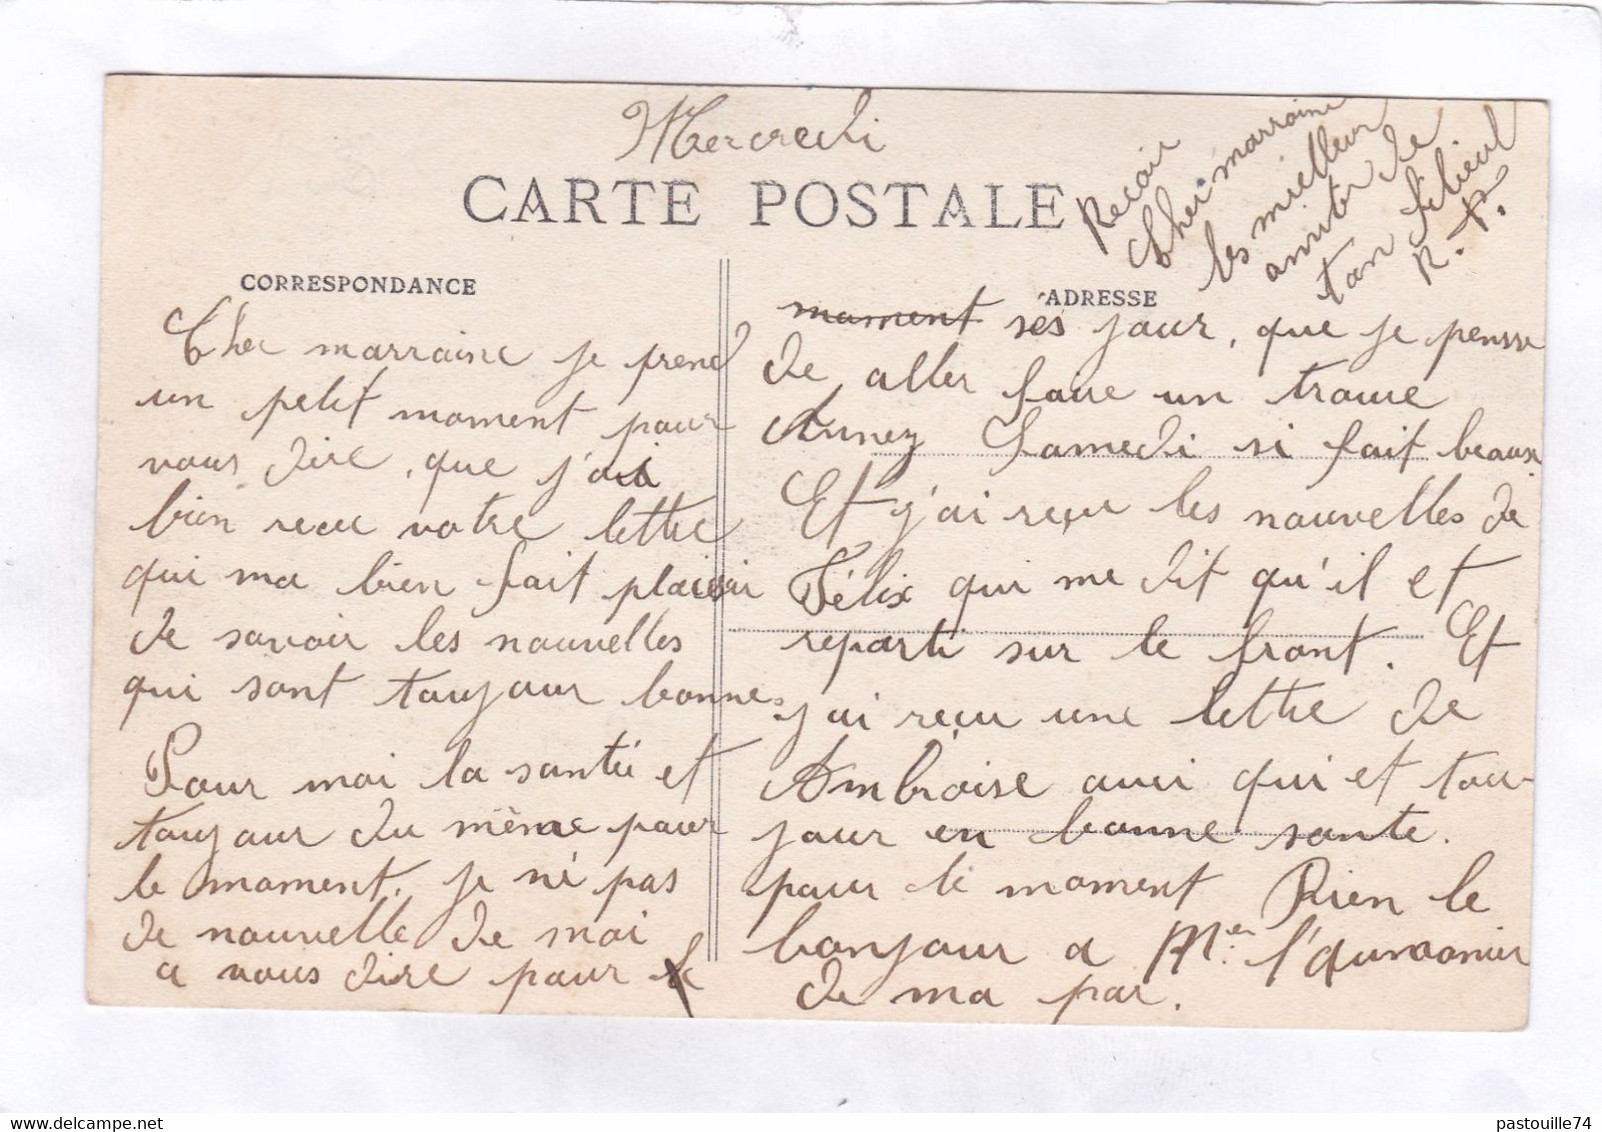 Mercredi
CARTE POSTALE
CORRESPONDANCE
Cher marraine je prend
un petit moment pour
vous dire, que j'ai
bien recue votre lettre
qui ma bien fait plaisir
de savoir les nouvelles
qui sont toujour bonnes
Pour moi la santé et
toujour du même pour
le moment. je né pas
de nouvelle de moi
a vous dire pour le
ADRESSE
moment ses jour, que je pensse
de aller faire un
Annez Samedi si fait beaux
Et j'ai reçue les nouvelles de
Félix qui me dit qu'il et
reparti sur le front. Et
j'ai reçu une lettre de
Ambroise aussi qui et tou-
jour en bonne sante.
pour le moment Rien le
bonjour a Mer.
de ma par.
Recoir
Cher marraine
les meilleur
amiter de
ton filieul
R. P.
pastouille74